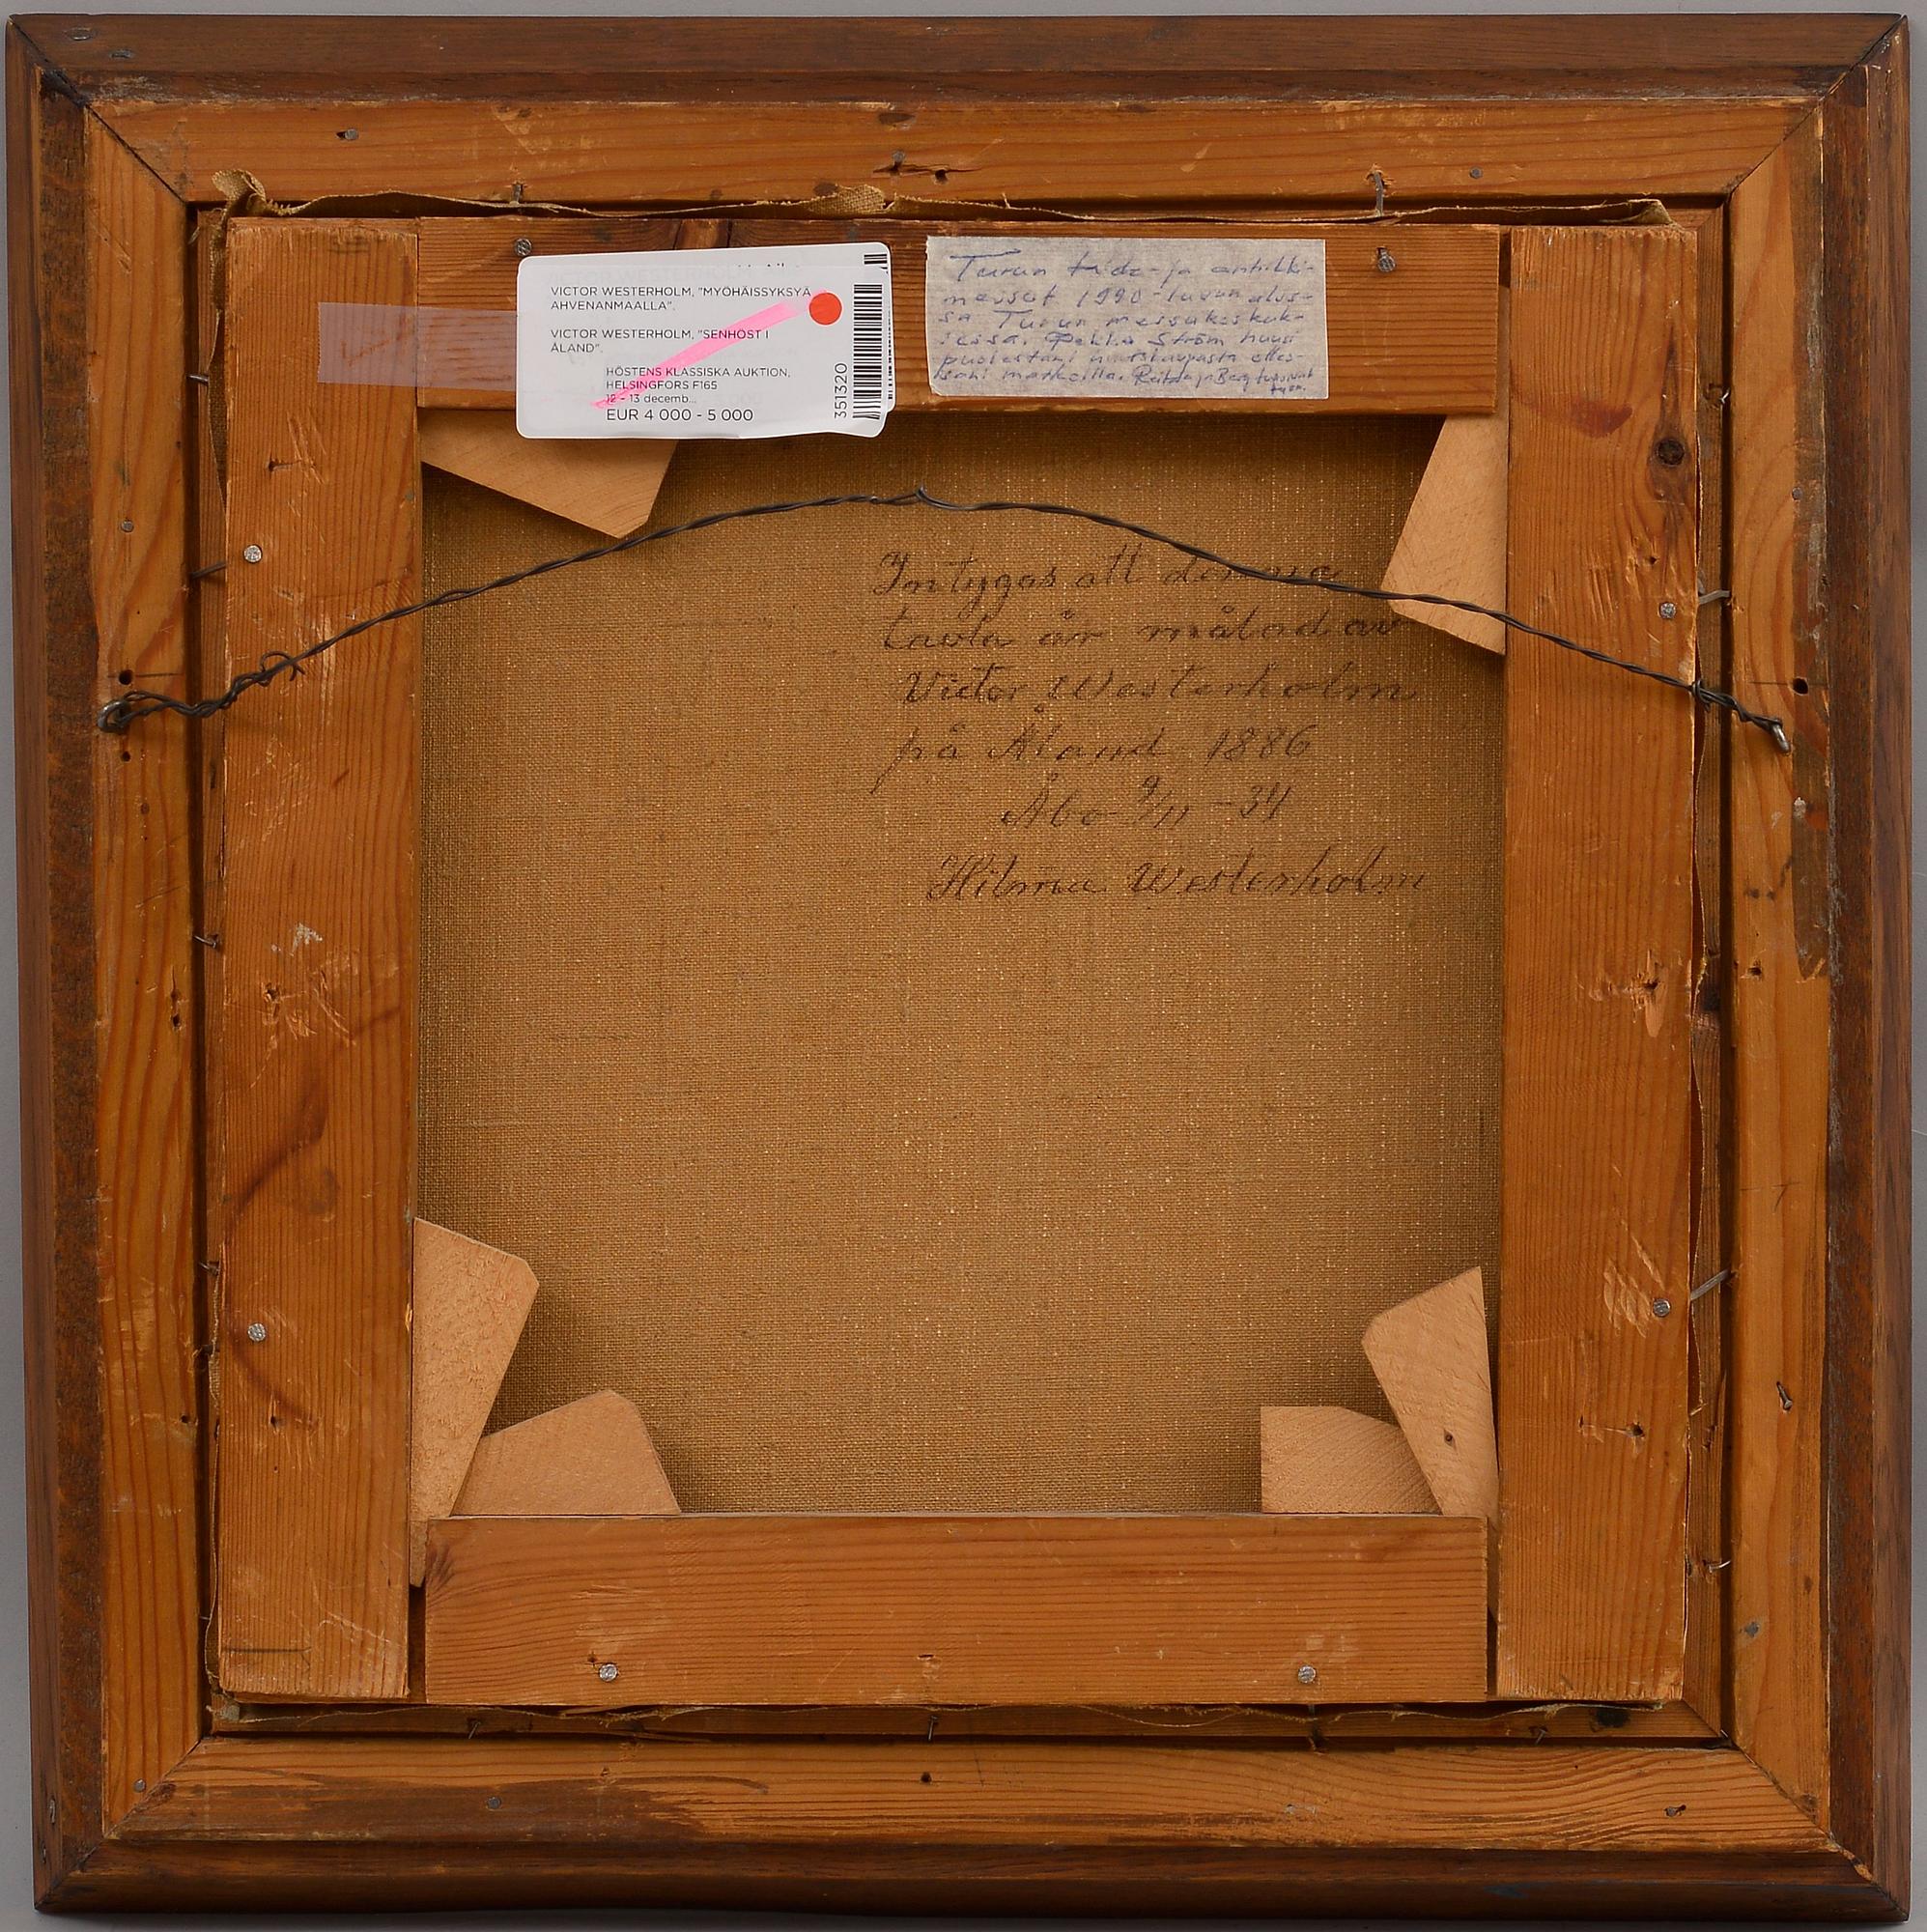 VICTOR WESTERHOLM, "MYÖHÄISSYKSYÄ
AHVENANMAALLA".
VICTOR WESTERHOLM, "SENHÖST I
ÅLAND".
HÖSTENS KLASSISKA AUKTION,
HELSINGFORS F165
12 - 13 decemb...
EUR 4 000 - 5 000
351320
Turun taide- ja antiikki-
messut 1990-luvun alus-
sa Turun messukeskuk-
sessa. Pekka Ström huusi
puolestani
markoilla. Berg
Intygas att denna
tavla är målad av
Victor Westerholm
på Åland 1886
Åbo 9/11 -34
Hilma Westerholm